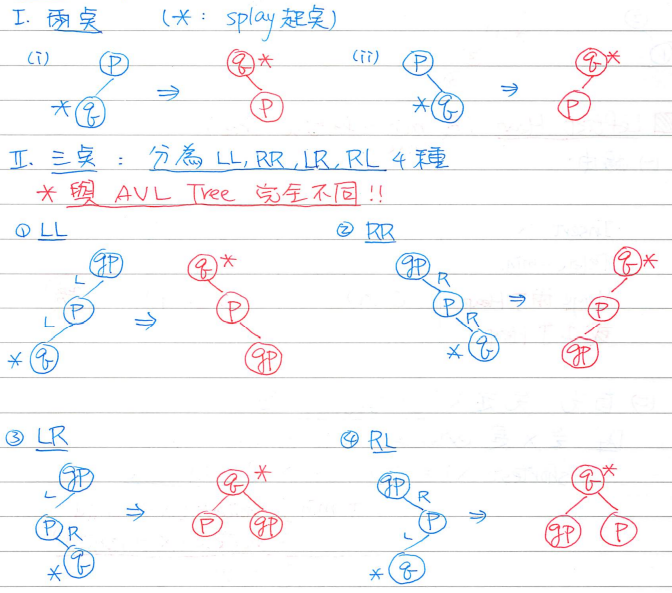 I. 兩点 (*: splay 起点)
(i) P * q ⇒ q * P (ii) P * q ⇒ q * P
II. 三点: 分為 LL, RR, LR, RL 4 種
* 與 AVL Tree 完全不同!!
① LL ② RR
gp L P L * q ⇒ q * P gp gp R P R * q ⇒ q * P gp
③ LR ④ RL
gp L P R * q ⇒ q * P gp gp R P L * q ⇒ q * gp P